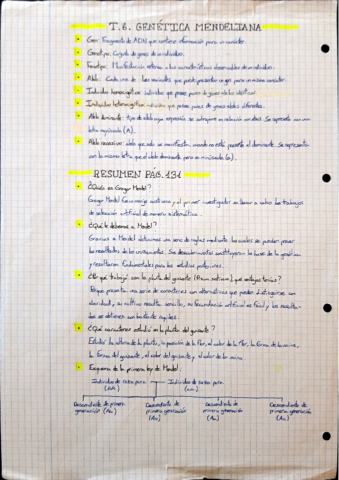 T.6. GENÉTICA MENDELIANA
• Gen: Fragmento de ADN que contiene información para un carácter.
• Genotipo: Conjunto de genes de un individuo.
• Fenotipo: Manifestación externa o las características observables de un individuo.
• Alelo: Cada una de las variantes que puede presentar un gen para un mismo carácter.
• Individuo homocigótico: individuo que posee pares de genes idénticos.
• Individuo heterocigótico: individuo que posee pares de genes alelos diferentes.
• Alelo dominante: tipo de alelo cuya expresión se sobrepone en relación con otros. Se representa con una
letra mayúscula (A).
• Alelo recesivo: alelo que solo se manifiesta cuando no está presente el dominante. Se representa
con la misma letra que el alelo dominante pero en minúscula (a).
RESUMEN PÁG.131
• ¿Quién es Gregor Mendel?
Gregor Mendel fue un monje austriaco y el primer investigador en llevar a cabo los trabajos
de selección artificial de manera sistemática.
• ¿Qué le debemos a Mendel?
Gracias a Mendel obtuvimos una serie de reglas mediante las cuales se pueden prever
los resultados de los cruzamientos. Sus descubrimientos constituyeron la base de la genética
y resultaron fundamentales para los estudios posteriores.
• ¿Por qué trabajó con la planta del guisante (Pisum sativum) y qué ventajas tenía?
Porque presenta una serie de caracteres con alternativas que pueden distinguirse con
claridad, su cultivo resulta sencillo, su fecundación artificial es fácil y los resulta-
dos se obtienen con bastante rapidez.
• ¿Qué caracteres estudió en la planta del guisante?
Estudió la altura de la planta, la posición de la flor, el color de la flor, la forma de la vaina,
la forma del guisante, el color del guisante y el color de la vaina.
• Esquema de la primera ley de Mendel:
Individuo de raza pura (AA) Individuo de raza pura (aa)
Descendiente de primera generación (Aa) Descendiente de primera generación (Aa) Descendiente de primera generación (Aa) Descendiente de primera generación (Aa)